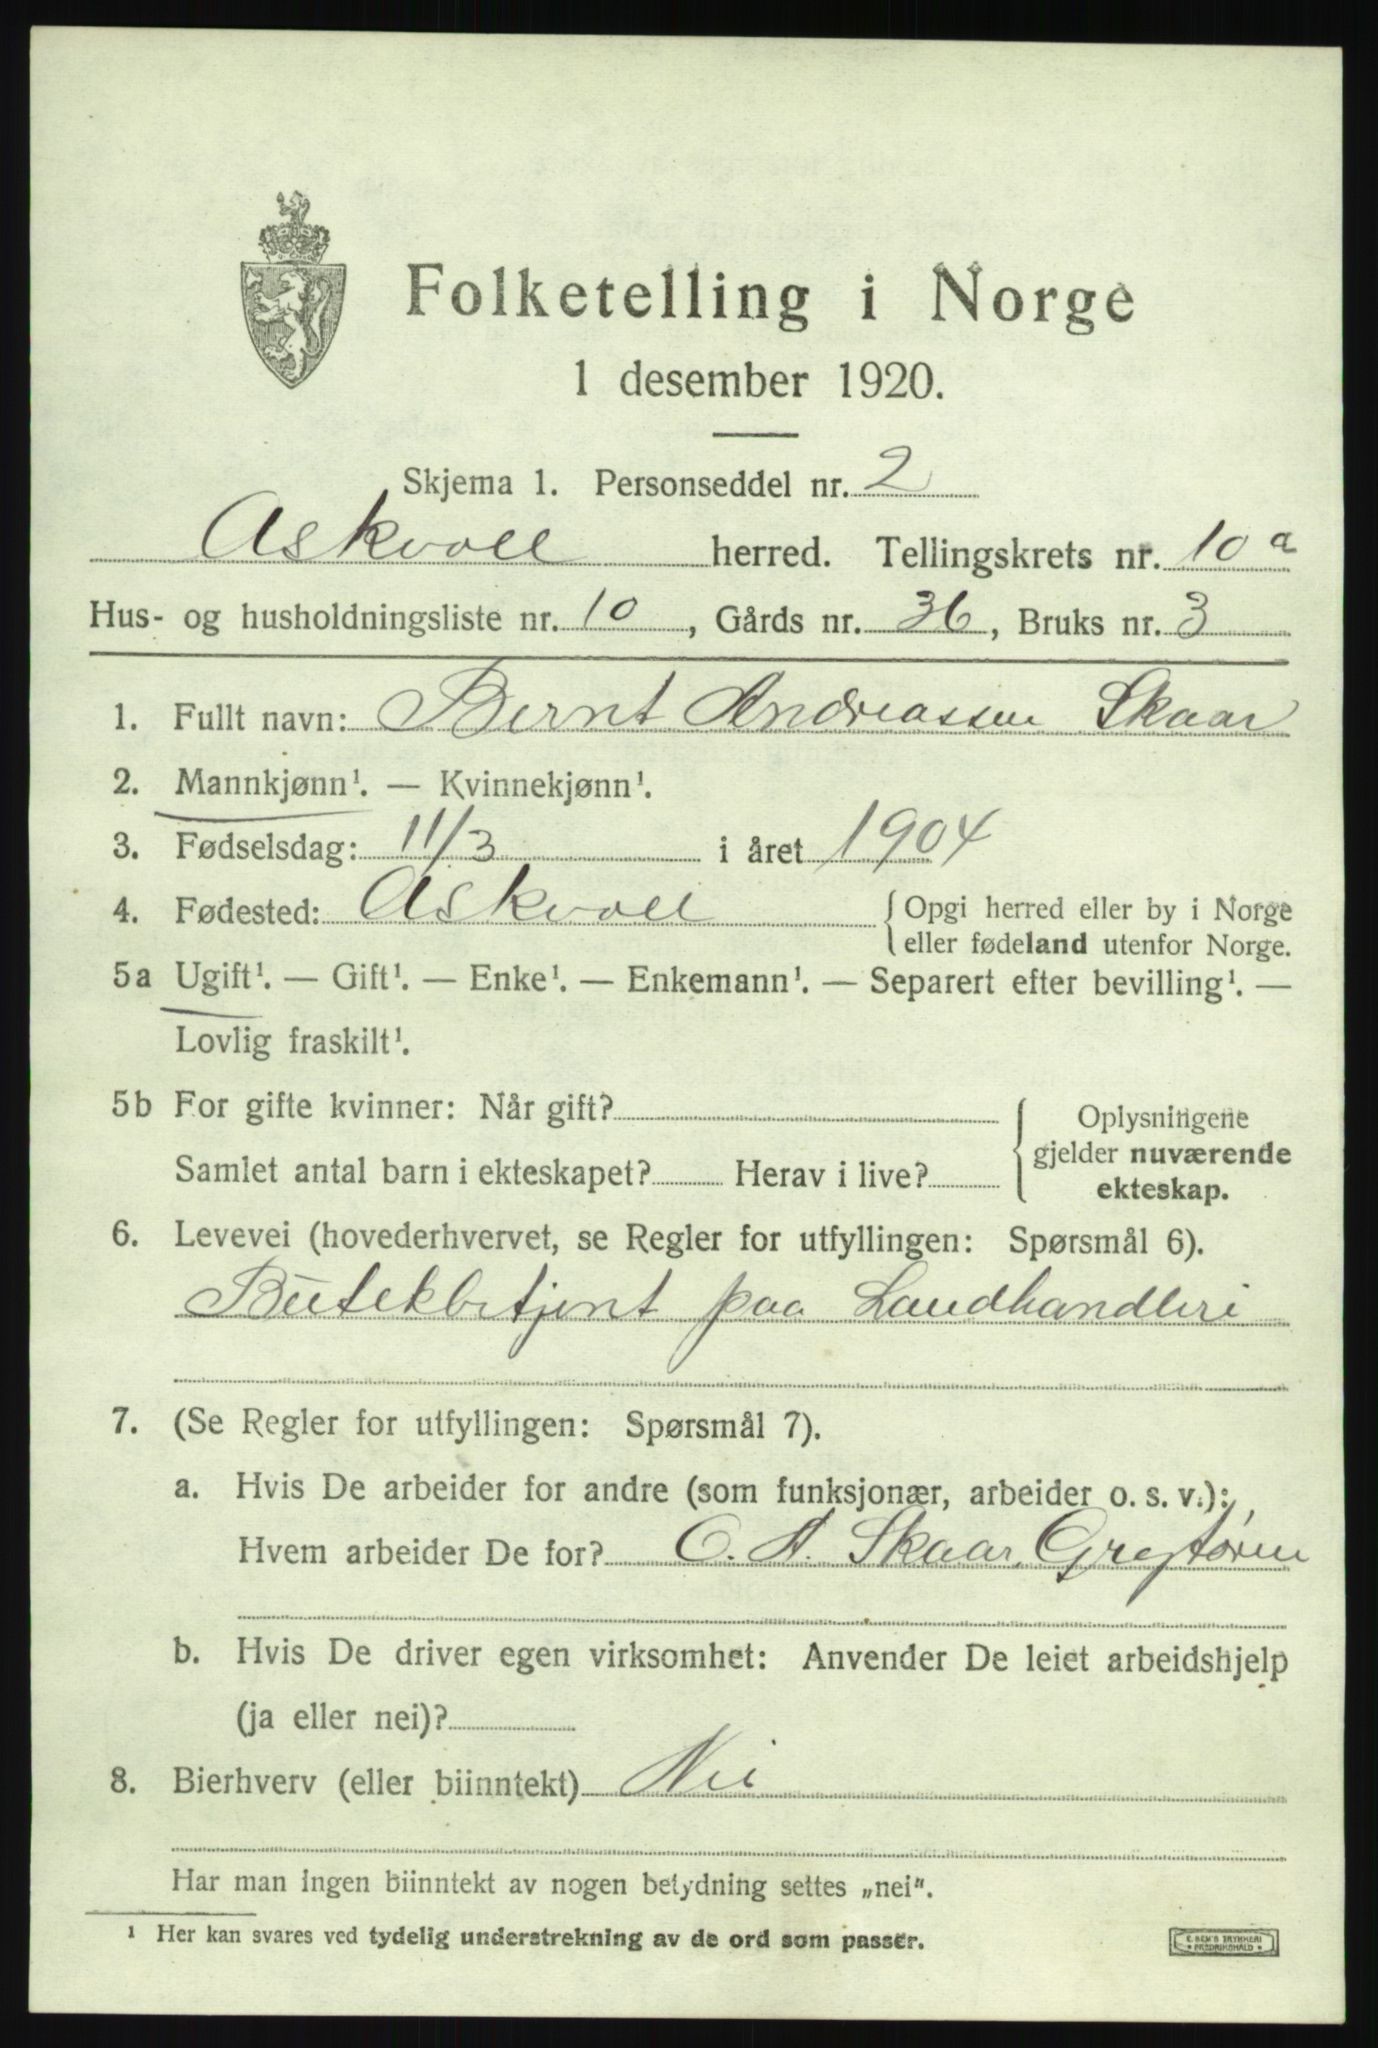 Folketelling i Norge
1 desember 1920.
Skjema 1. Personseddel nr. 2
Askvoll herred. Tellingskrets nr. 10 a
Hus- og husholdningsliste nr. 10, Gårds nr. 36, Bruks nr. 3
1. Fullt navn: Bernt Andreassen Skaar
2. Mannkjønn¹. — Kvinnekjønn¹.
3. Fødselsdag: 11/3 i året 1904
4. Fødested: Askvoll {Opgi herred eller by i Norge
eller fødeland utenfor Norge.
5a Ugift¹. — Gift¹. — Enke¹. — Enkemann¹. — Separert efter bevilling¹. —
Lovlig fraskilt¹.
5b For gifte kvinner: Når gift?
Samlet antal barn i ekteskapet? Herav i live?
Oplysningene
gjelder nuværende
ekteskap.
6. Levevei (hovederhvervet, se Regler for utfyllingen: Spørsmål 6).
Butekbetjent paa Landhandleri
7. (Se Regler for utfyllingen: Spørsmål 7).
a. Hvis De arbeider for andre (som funksjonær, arbeider o. s. v.):
Hvem arbeider De for? C. A. Skaar,
b. Hvis De driver egen virksomhet: Anvender De leiet arbeidshjelp
(ja eller nei)?
8. Bierhverv (eller biinntekt) Nei
Har man ingen biinntekt av nogen betydning settes „nei".
¹ Her kan svares ved tydelig understrekning av de ord som passer.